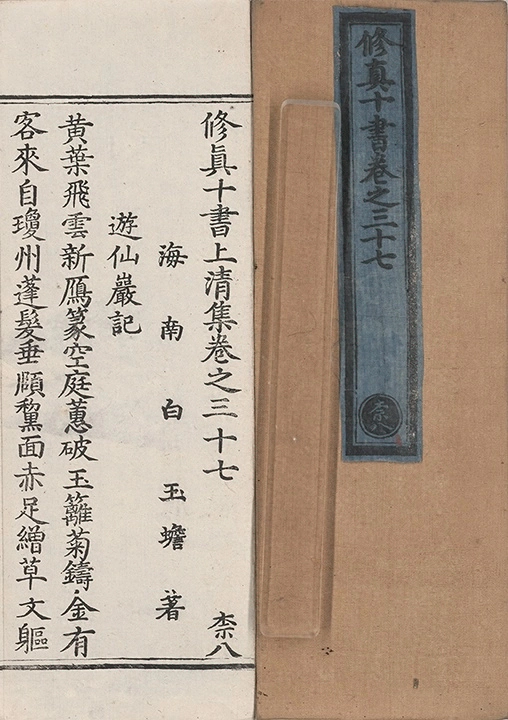 修真十書卷之三十七
柰八
修真十書上清集卷之三十七
柰八
海南白玉蟾著
遊仙巖記
黃葉飛雲新鴈篆空庭蕙破玉籬菊鑄金有
客來自瓊州蓬髮垂頤黧面赤足繒草文軀